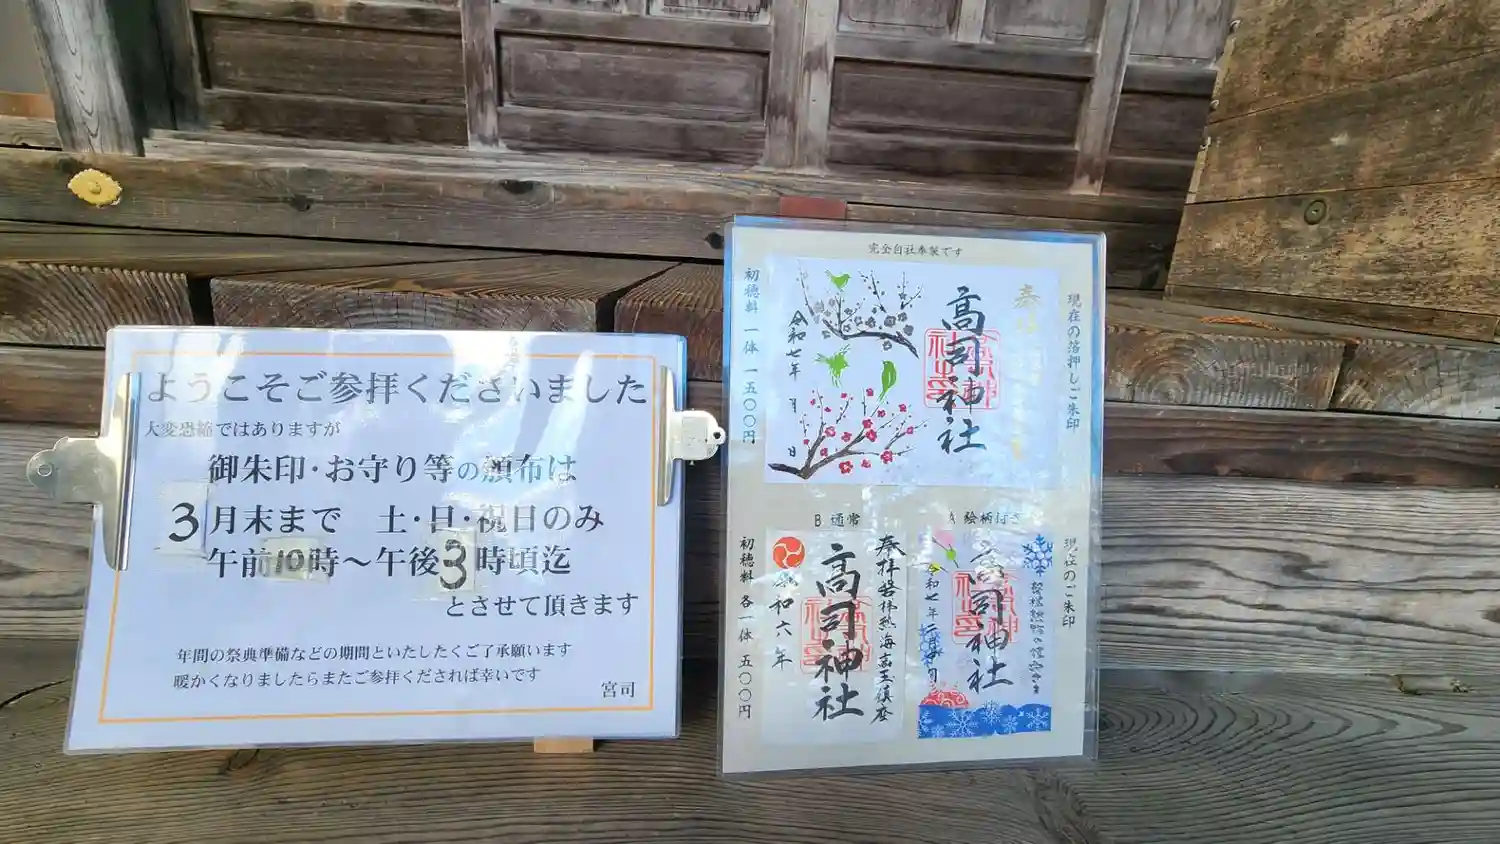 ようこそご参拝くださいました
大変恐縮ではありますが
御朱印・お守り等の頒布は
3月末まで 土・日・祝日のみ
午前10時～午後3時頃迄
とさせて頂きます
年間の祭典準備などの期間といたしたくご了承願います
暖かくなりましたらまたご参拝くだされば幸いです
宮司
完全自社奉製です
現在の箔押しご朱印
奉拝
高司神社
令和七年 月 日
初穂料 一体 一五〇〇円
現在のご朱印
A 絵柄付き
高司神社
令和七年二月
B 通常
奉拝
高司神社
令和六年
初穂料 各一体 五〇〇円